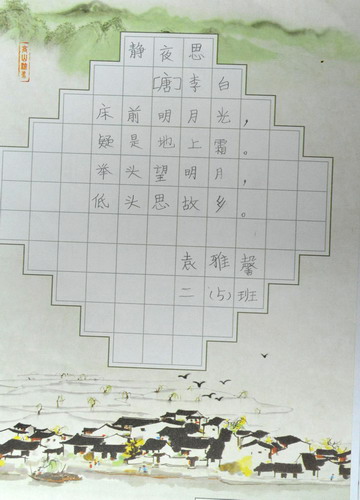 静夜思
[唐]李白
床前明月光，
疑是地上霜。
举头望明月，
低头思故乡。
袁雅馨
二(5)班